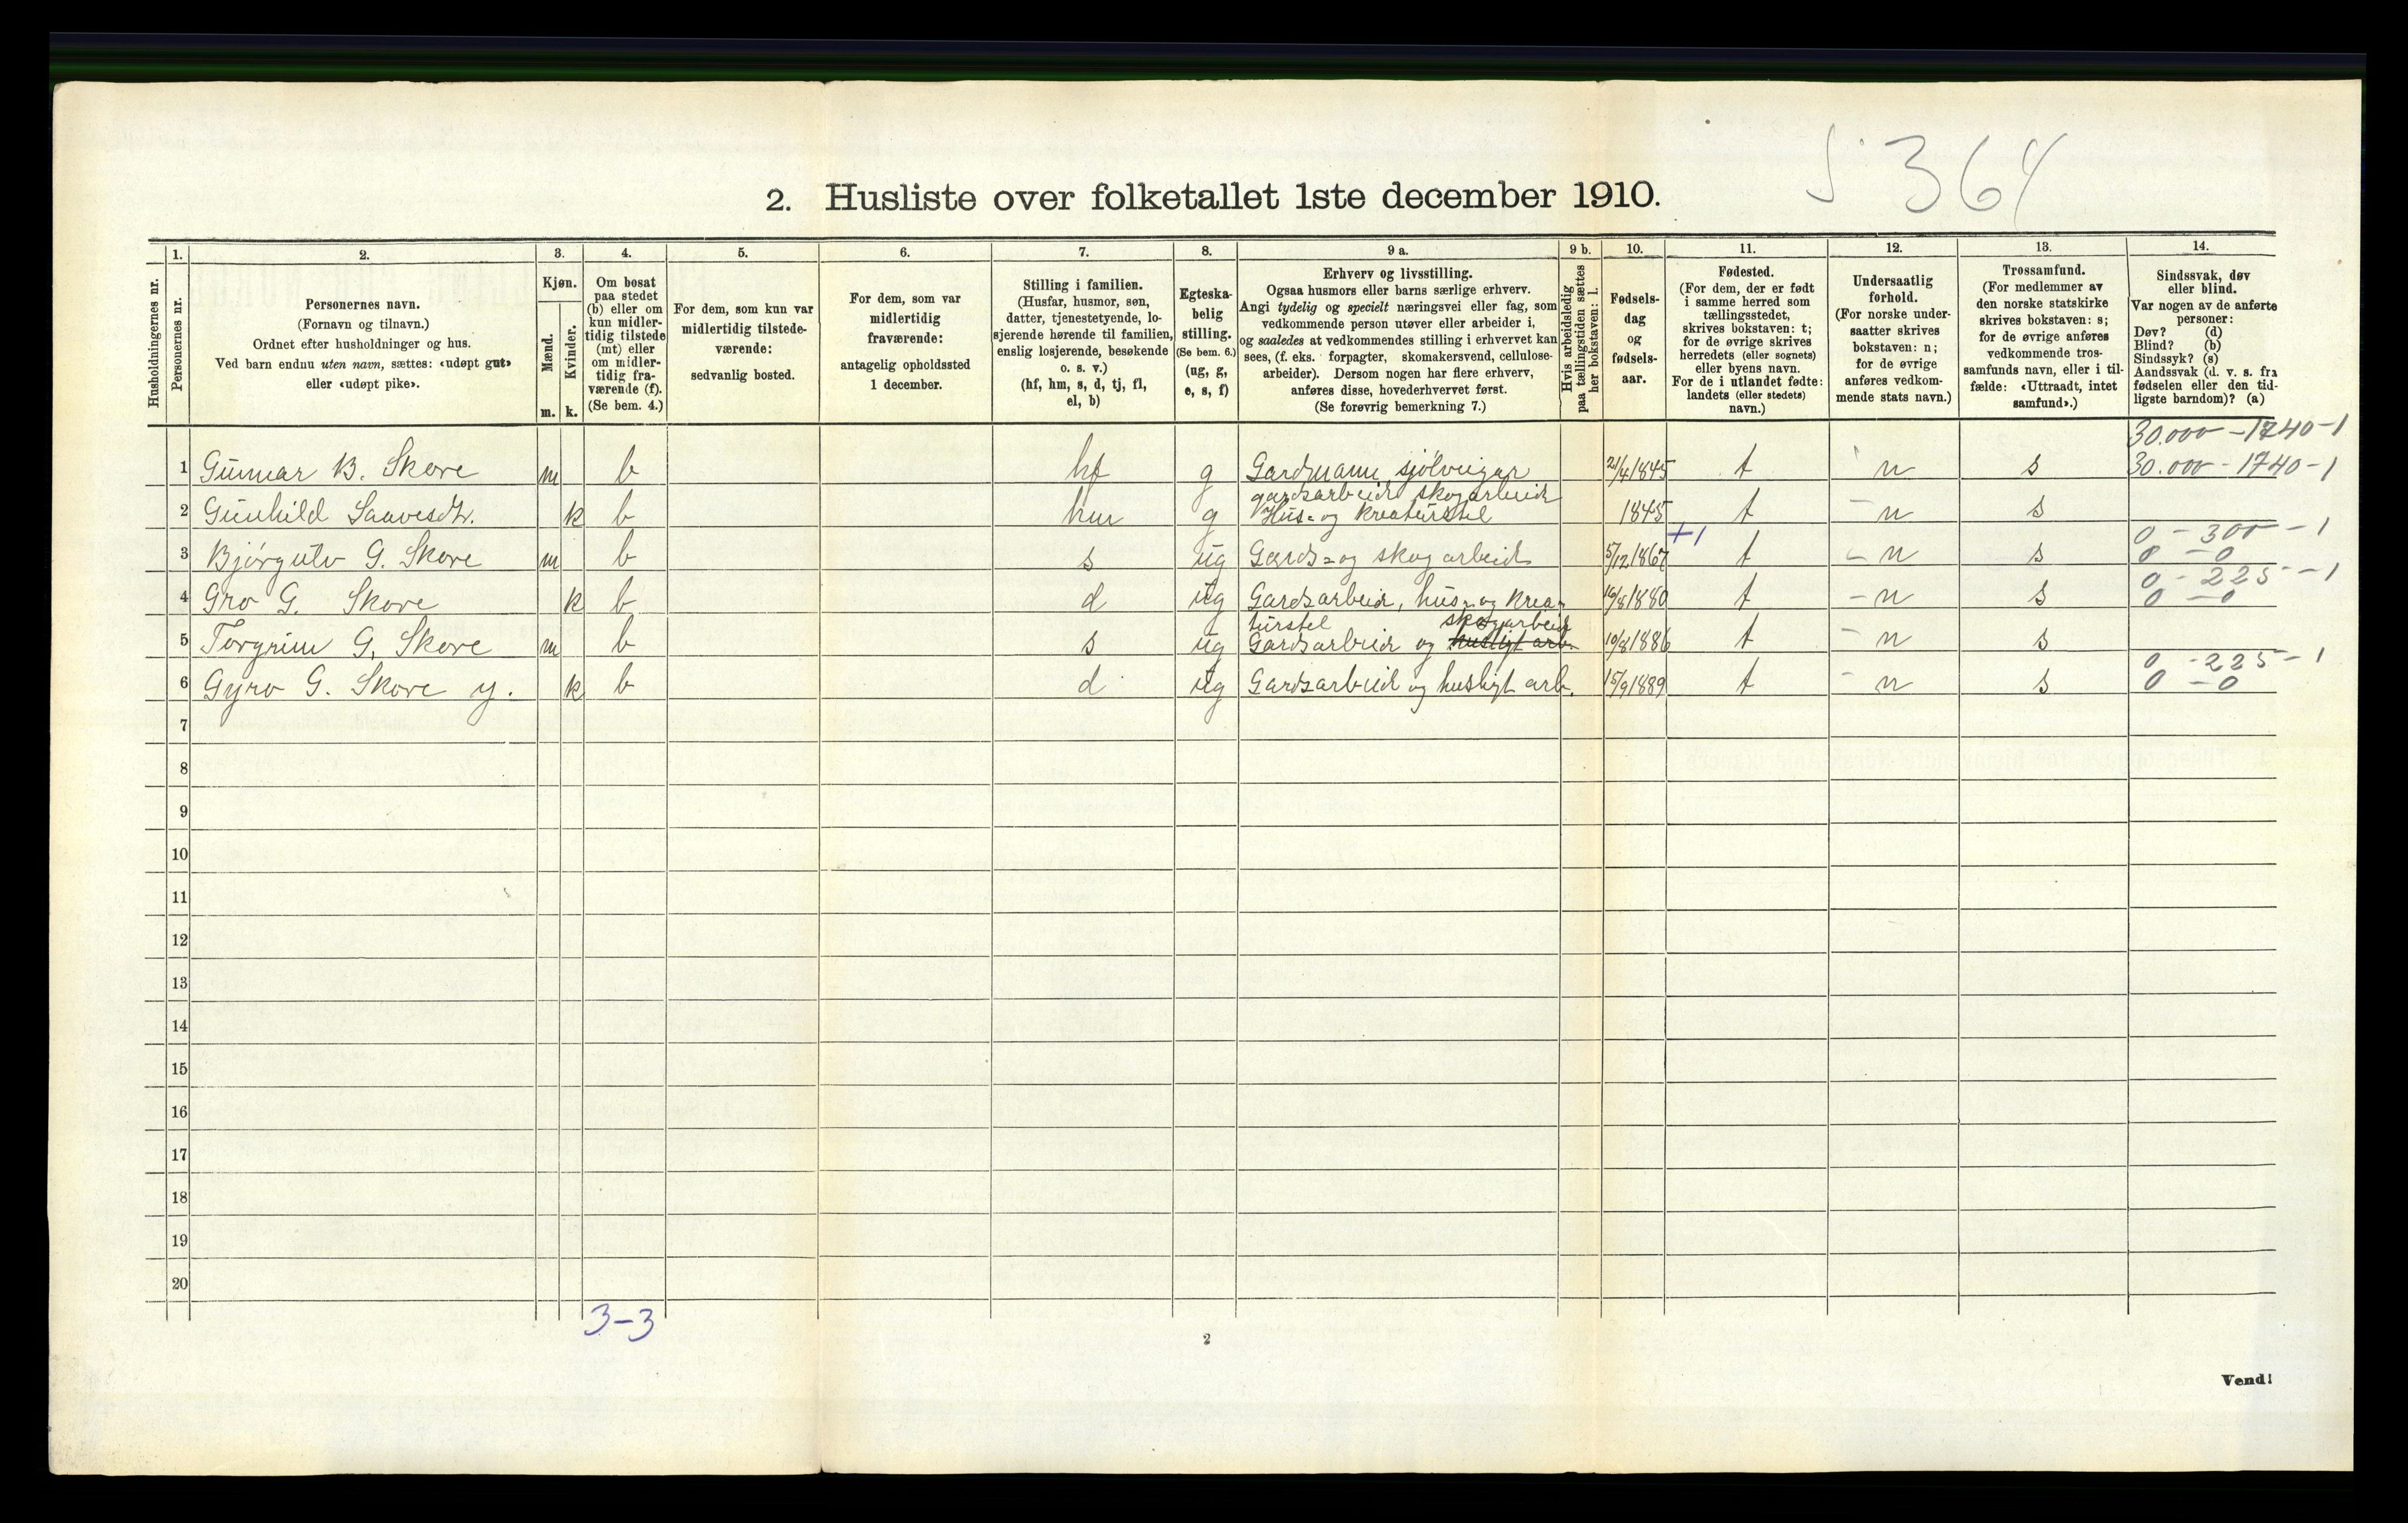 S 364
2. Husliste over folketallet 1ste december 1910.
Husholdningernes nr.
1.
Personernes nr.
2.
Personernes navn.
(Fornavn og tilnavn.)
Ordnet efter husholdninger og hus.
Ved barn endnu uten navn, sættes: «udøpt gut»
eller «udøpt pike».
3.
Kjøn.
Mænd.
Kvinder.
m. k.
4.
Om bosat
paa stedet
(b) eller om
kun midler-
tidig tilstede
(mt) eller
om midler-
tidig fra-
værende (f).
(Se bem. 4.)
5.
For dem, som kun var
midlertidig tilstede-
værende:
sedvanlig bosted.
6.
For dem, som var
midlertidig
fraværende:
antagelig opholdssted
1 december.
7.
Stilling i familien.
(Husfar, husmor, søn,
datter, tjenestetyende, lo-
sjerende hørende til familien,
enslig losjerende, besøkende
o. s. v.)
(hf, hm, s, d, tj, fl,
el, b)
8.
Egteska-
belig
stilling.
(Se bem. 6.)
(ug, g,
e, s, f)
9 a.
Erhverv og livsstilling.
Ogsaa husmors eller barns særlige erhverv.
Angi tydelig og specielt næringsvei eller fag, som
vedkommende person utøver eller arbeider i,
og saaledes at vedkommendes stilling i erhvervet kan
sees, (f. eks. forpagter, skomakersvend, cellulose-
arbeider). Dersom nogen har flere erhverv,
anføres disse, hovederhvervet først.
(Se forøvrig bemerkning 7.)
9 b.
Hvis arbeidsledig
paa tællingstiden sættes
her bokstaven: l.
10.
Fødsels-
dag
og
fødsels-
aar.
11.
Fødested.
(For dem, der er født
i samme herred som
tællingsstedet,
skrives bokstaven: t;
for de øvrige skrives
herredets (eller sognets)
eller byens navn.
For de i utlandet fødte:
landets (eller stedets)
navn.)
12.
Undersaatlig
forhold.
(For norske under-
saatter skrives
bokstaven: n;
for de øvrige
anføres vedkom-
mende stats navn.)
13.
Trossamfund.
(For medlemmer av
den norske statskirke
skrives bokstaven: s;
for de øvrige anføres
vedkommende tros-
samfunds navn, eller i til-
fælde: «Uttraadt, intet
samfund».)
14.
Sindssvak, døv
eller blind.
Var nogen av de anførte
personer:
Døv? (d)
Blind? (b)
Sindssyk? (s)
Aandssvak (d. v. s. fra
fødselen eller den tid-
ligste barndom)? (a)
30.000 - 1740 - 1
1 Gunnar B. Skore m b hf g Gardmann sjølveigar 21/4 1845 t n s 30.000 - 1740 - 1
gardsarbeid skogarbeid
2 Gunhild Saavesdtr. k b hm g Hus- og kreaturstel 1845 t n s
+1 0 - 300 - 1
3 Bjørgulv G. Skore m b s ug Gards- og skogarbeid 5/12 1867 t n s 0 - 0
0 - 225 - 1
4 Gro G. Skore k b d ug Gardsarbeid, hus- og krea- 16/8 1880 t n s 0 - 0
turstel skogarbeid
5 Torgrim G. Skore m b s ug Gardsarbeid og husligt arb. 10/8 1886 t n s
0 - 225 - 1
6 Gyro G. Skore y. k b d ug Gardsarbeid og husligt arb. 15/9 1889 t n s 0 - 0
7
8
9
10
11
12
13
14
15
16
17
18
19
20
3-3
2
Vend!